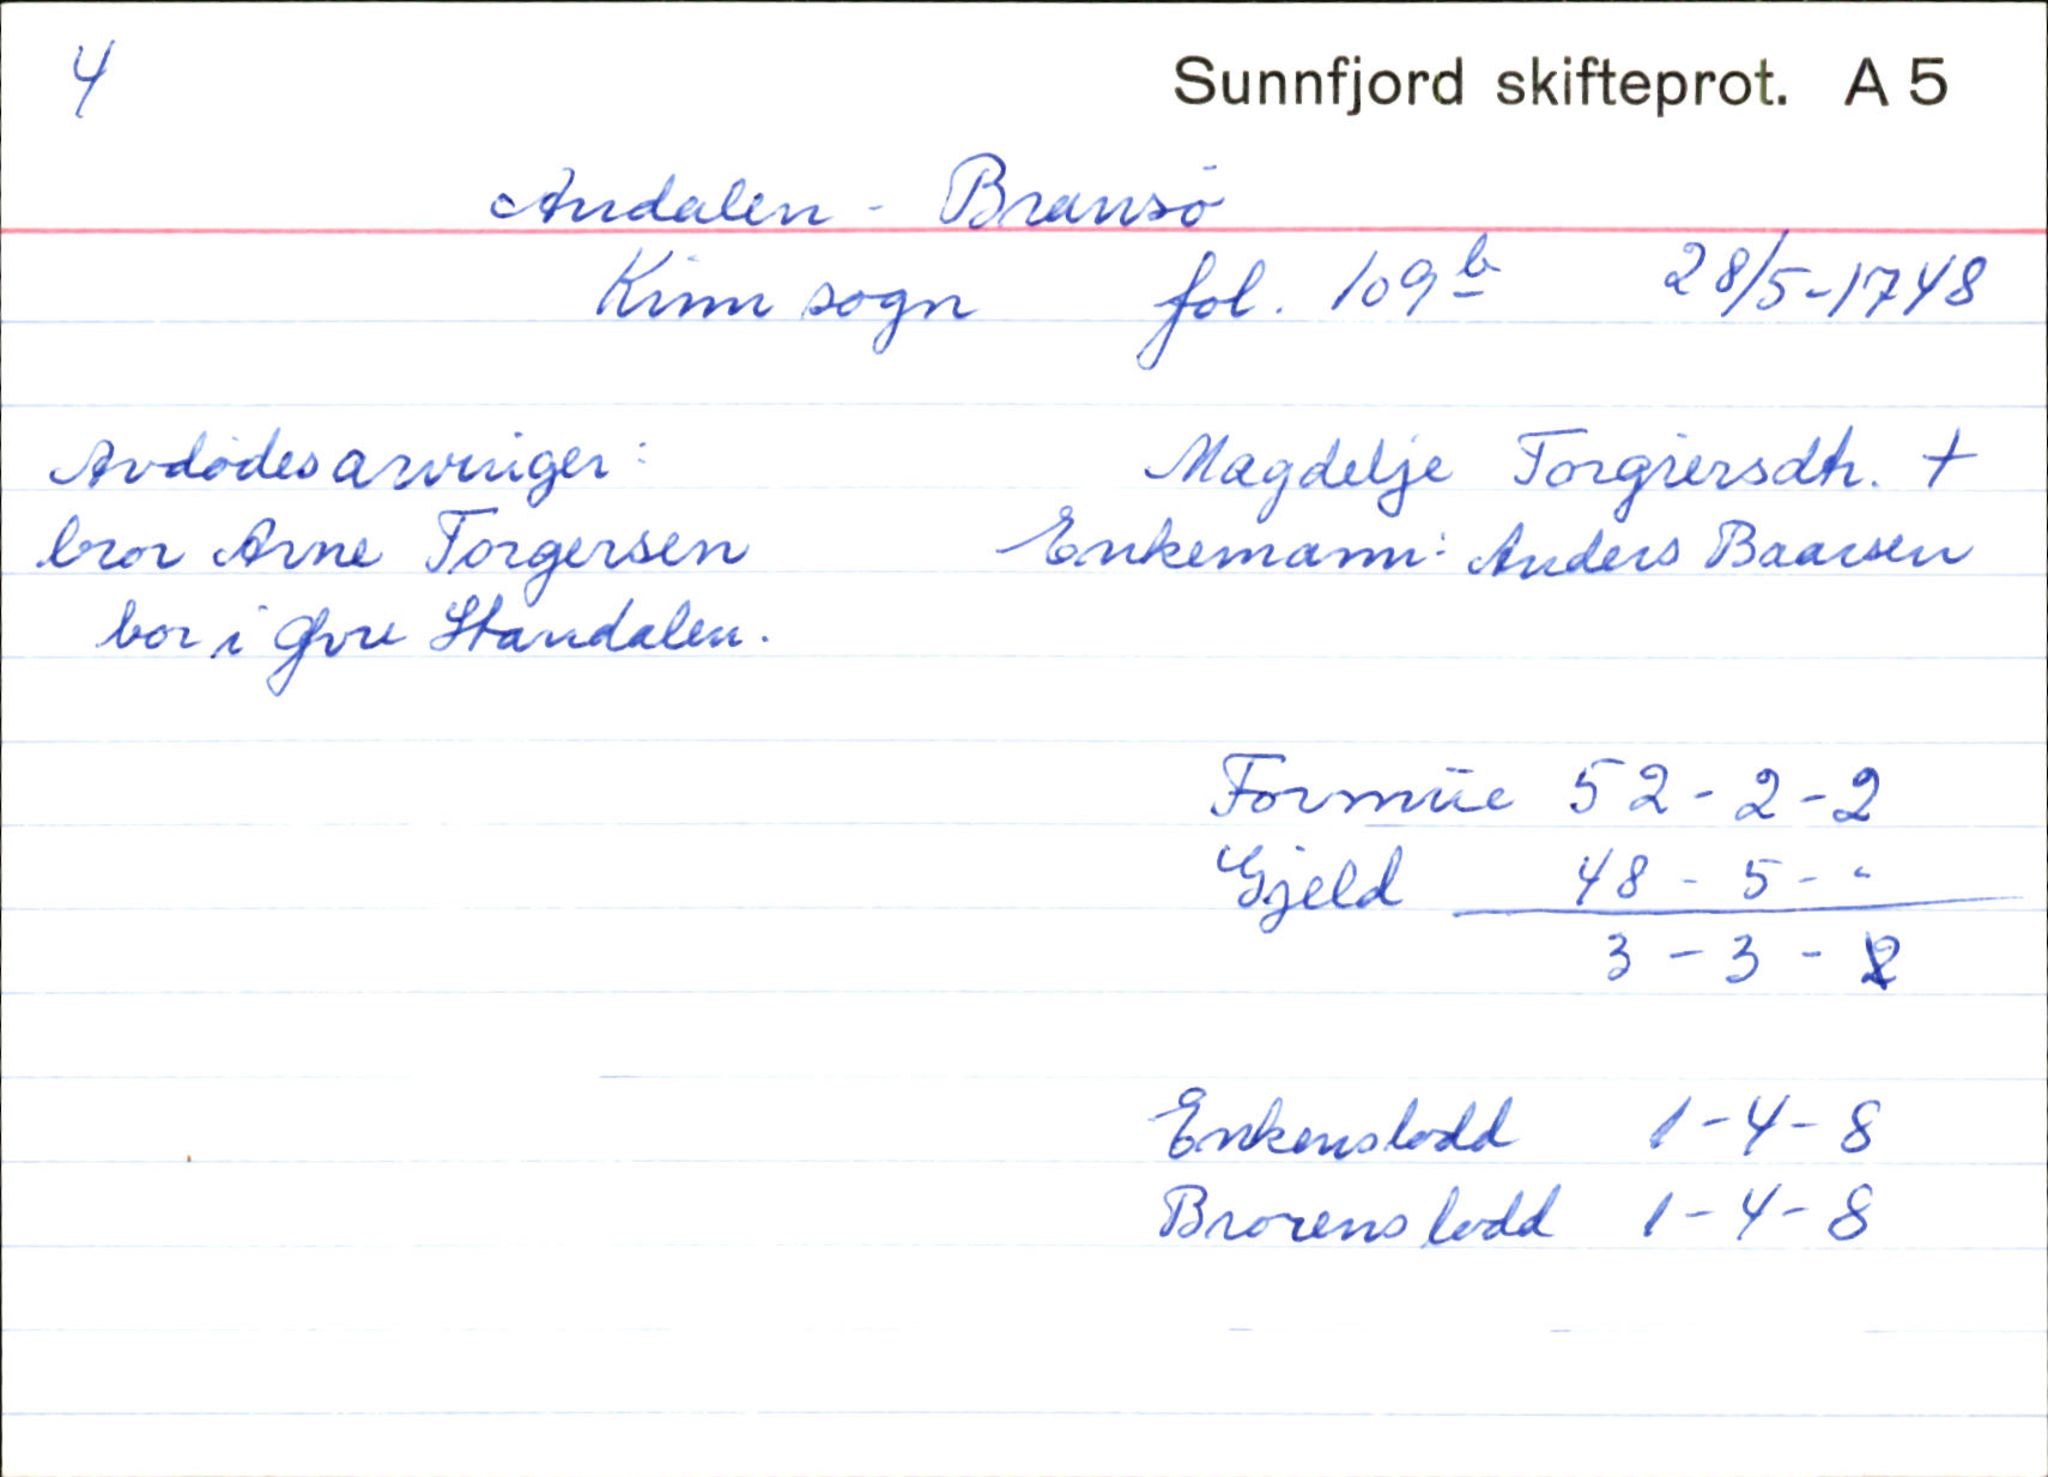 4
Sunnfjord skifteprot. A 5
Andalen - Bransö
Kinn sogn fol. 109b 28/5-1748
Avdödes arvinger:
bror Arne Torgersen
bor i Øvre Standalen.
Magdelje Torgiersdtr. †
Enkemann: Anders Baarsen
Formue 52-2-2
Gjeld 48-5-"
3-3-2
Enkens lodd 1-4-8
Brorens lodd 1-4-8